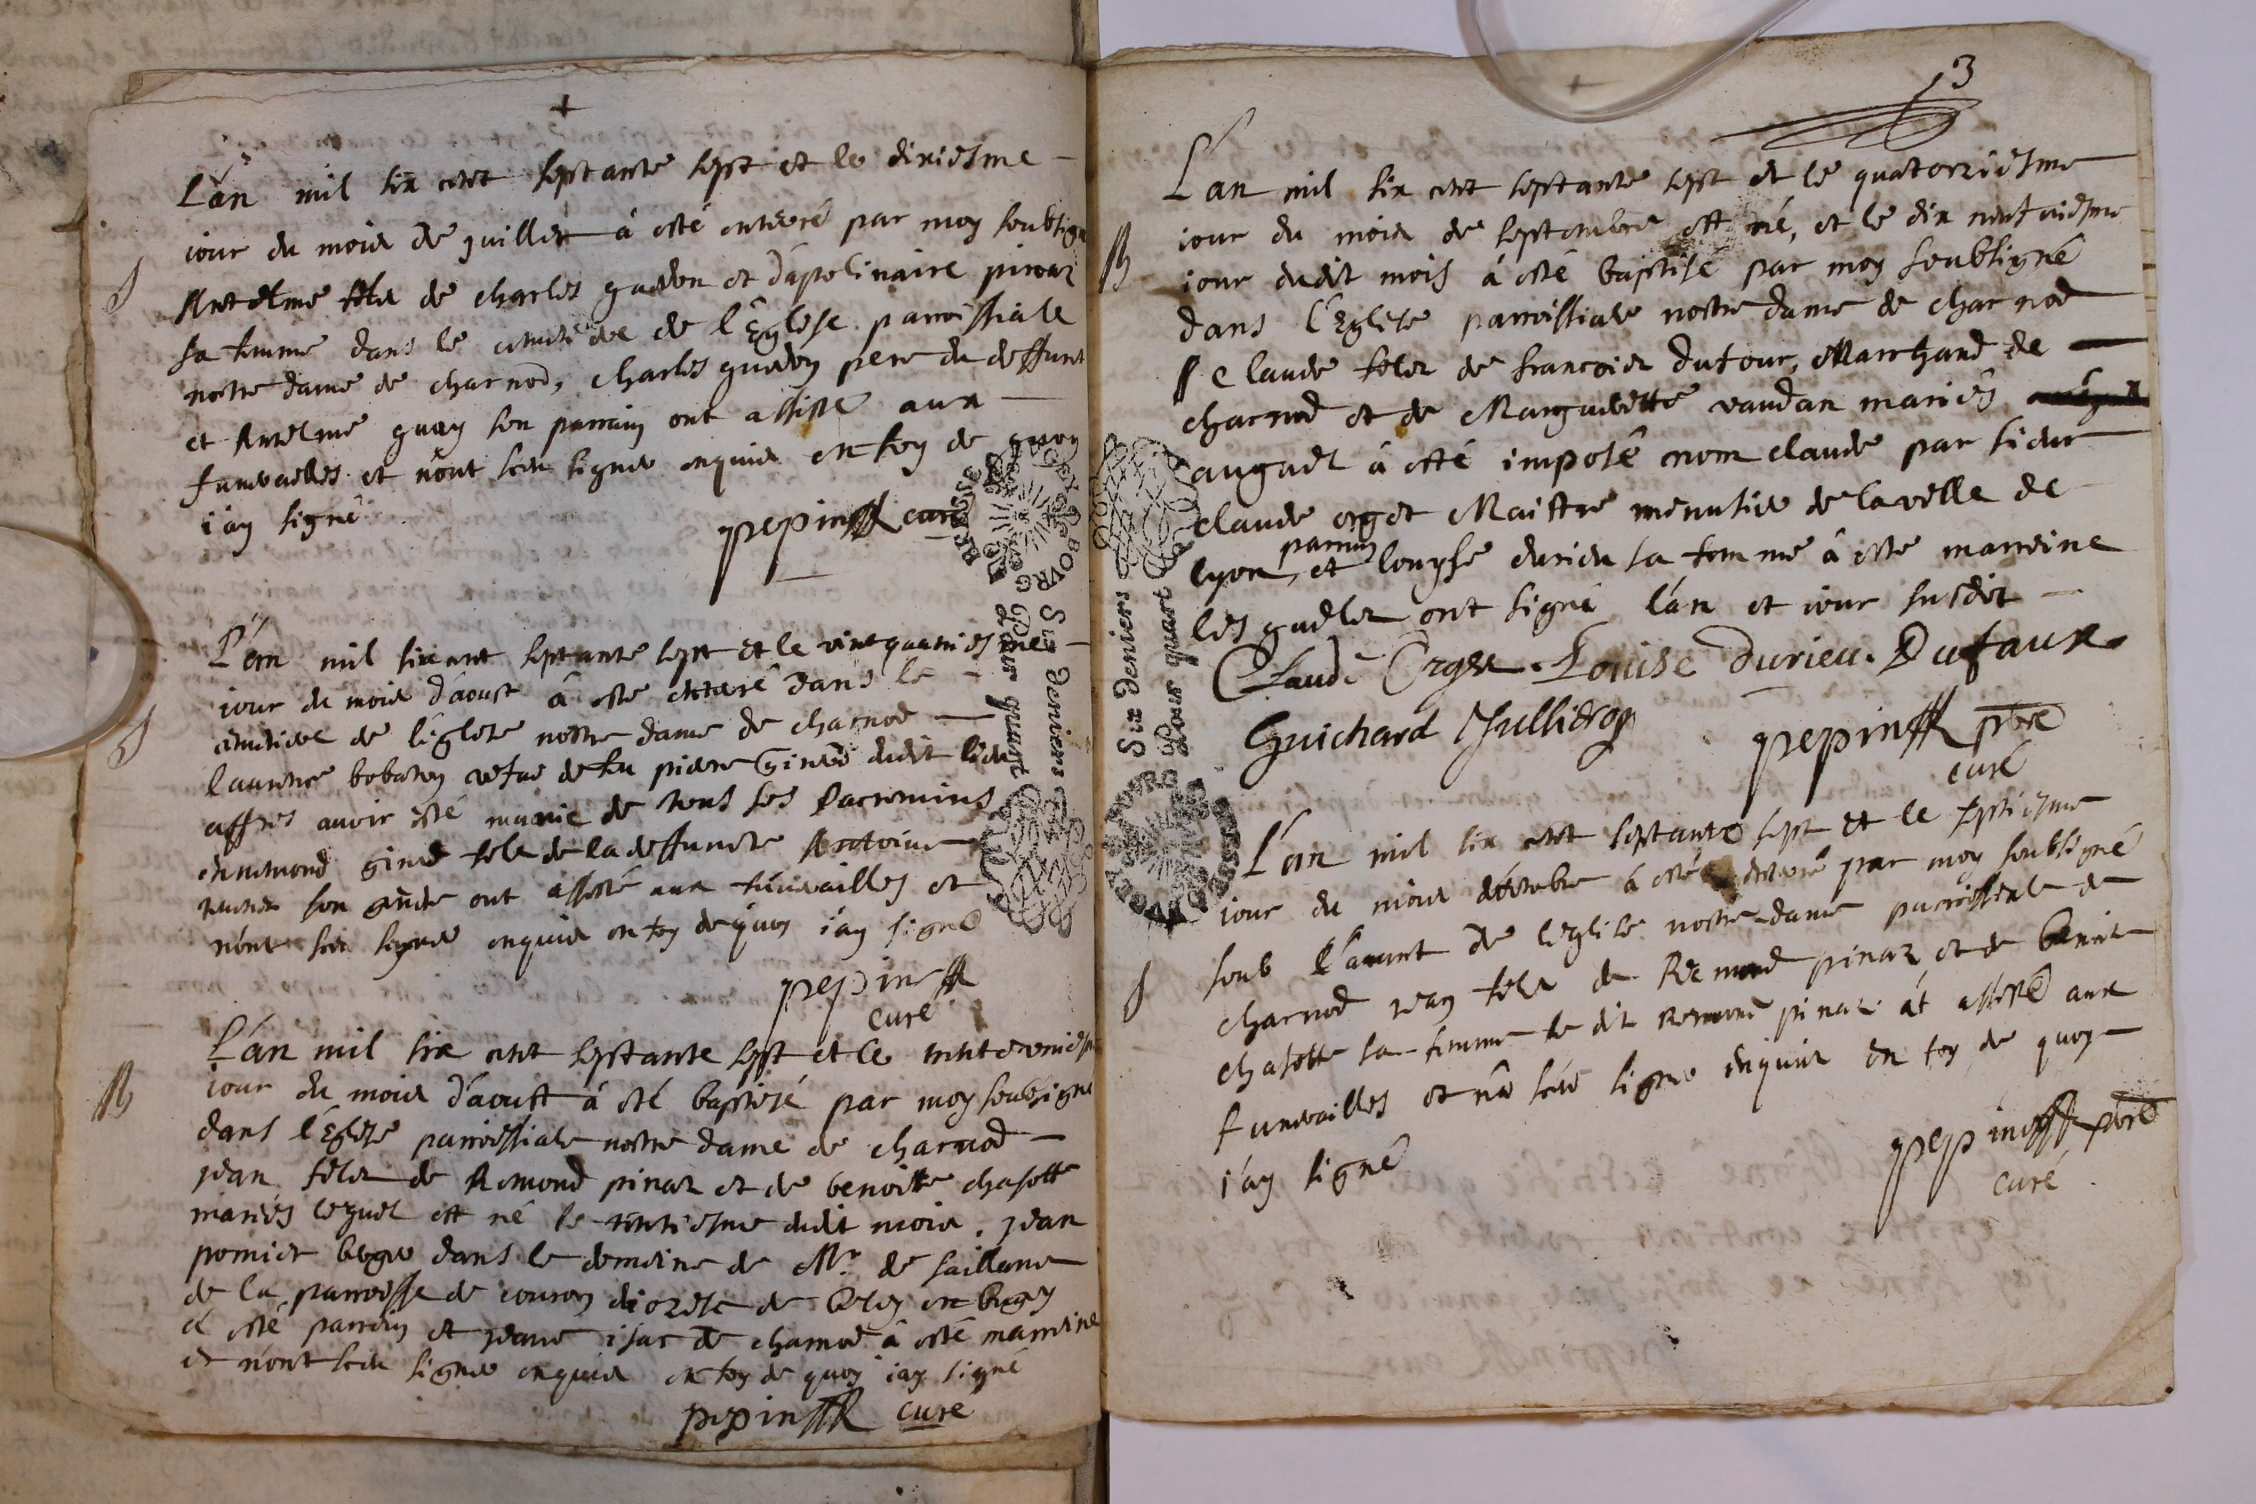 +
L'an mil six cent septante sept et le dixiesme
jour du mois de juillet à esté enterré par moy soubsigné
S
Antelme fils de charles guedon et d'apolinaire pinaz
sa femme dans le cimetiere de l'Eglise parroissiale
nostre dame de charnod, charles guedon pere du deffunt
et Antelme guay son parrain ont assisté aux
funerailles et n'ont sceu signer enquis en foy de quoy
j'ay signé
pepin cure
L'an mil six cent septante sept et le vint
jour du mois d'aoust à esté enterré dans le
S
cimetiere de l'eglise nostre dame de charnod
laurence vefve de fu pierre Girod dudit lieu
appres avoir esté munie de tous les sacremens
girod fils de la deffuncte
son gendre ont assisté aux funerailles et
n'ont sceu signer enquis en foy de quoy j'ay signé
pepin
curé
L'an mil six cent septante sept et le
B
jour du mois d'aoust à été baptisé par moy soubsigné
dans l'Eglise parroissiale nostre dame de charnod
jean fils de Remond pinaz et de benoitte chasotte
mariés lequel est né le dudit mois. jean
dans le domeine de Mr. de
de la parroisse de diozese de en bugey
à esté parrain et jeane isac de charnod à esté marreine
et n'ont sceu signer enquis en foy de quoy j'ay signé
pepin cure
3
L'an mil six cent septante sept et le quatorziesme
B
jour du mois de septembre est né, et le dix neufviesme
jour dudit mois à esté baptisé par moy soubsigné
dans l'Eglise parroissiale nostre dame de charnod
Claude fils de francois dufour, Marchand de
charnod et de Margueritte vaudan mariés
auquel à esté imposé nom claude par sieur
claude orget Maistre menusier de la ville de
parrain
lyon, et louyse durieu sa femme à esté marreine
lesquels ont signé l'an et jour susdit
Claude Orget. Louise durieu. Dufaux
Guichard Jullieron
pepin pbre
curé
Six deniers
Pour quart
L'an mil six cent septante sept et le septiesme
jour du mois d'octobre à esté enterré par moy soubsigné
S
soub l'avant de l'eglise nostre-dame parroissiale de
charnod jean fils de Remond pinaz et de benoite
chasotte sa femme le dit Remond pinaz at assisté aux
funerailles et n'a sceu signer enquis en foy de quoy
j'ay signé
pepin pbre
curé
BRESSE BOVRG
Six deniers
Pour quart